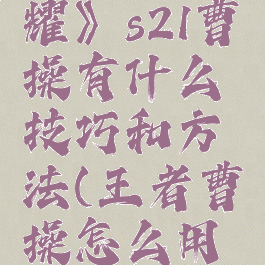 耀》s21曹
操有什么
技巧和方
法(王者曹
操怎么用